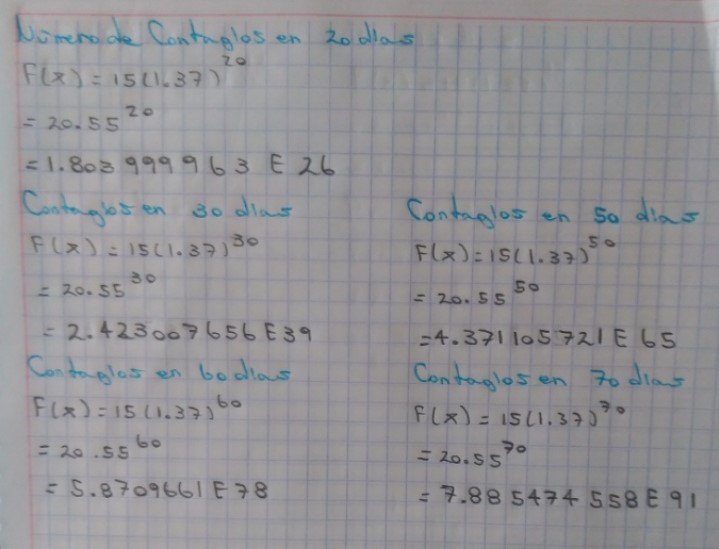 Número de Contagios en 20 dias
F(x) = 15(1.37)^20
= 20.55^20
= 1.803999963 E 26
Contagios en 30 dias
F(x) = 15(1.37)^30
= 20.55^30
= 2.423007656 E39
Contagios en 50 dias
F(x) = 15(1.37)^50
= 20.55^50
= 4.371105721 E 65
Contagios en 60 dias
F(x) = 15(1.37)^60
= 20.55^60
= 5.8709661 E 78
Contagios en 70 dias
F(x) = 15(1.37)^70
= 20.55^70
= 7.885474558 E 91